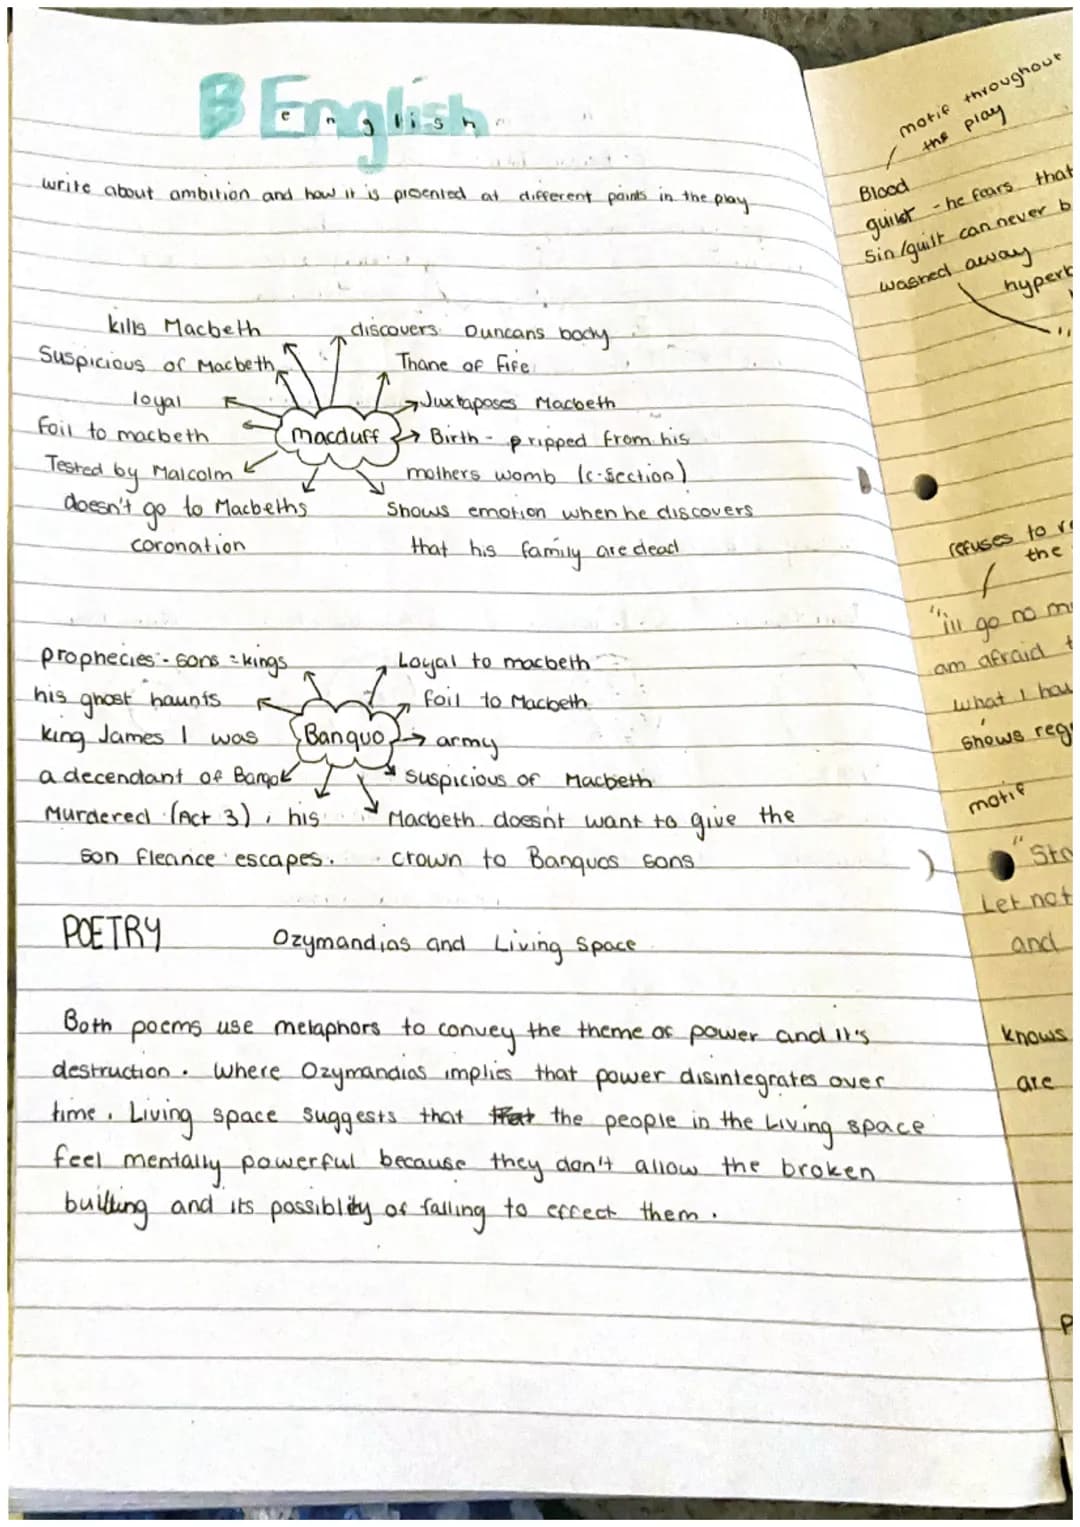 B English
english
write about ambition and how it is presented at different points in the play
kills Macbeth
discovers Duncans body
Suspicious of Macbeth
Thane of Fife
loyal
Juxtaposes Macbeth
Foil to macbeth
macduff
Birth - ripped from his
mothers womb (c-section)
Tested by Malcolm
doesn't go to Macbeths
coronation
Shows emotion when he discovers
that his family are dead
prophecies - sons = kings
Loyal to macbeth
his ghost haunts
foil to Macbeth
king James I was
Banquo
army
a decendant of
Suspicious of Macbeth
Murdered (Act 3), his
son fleance escapes.
Macbeth doesn't want to give the
crown to Banquos sons
POETRY
Ozymandias and Living Space
Both poems use metaphors to convey the theme of power and it's
destruction. Where Ozymandias implies that power disintegrates over
time, Living space suggests that the people in the Living space
feel mentally powerful because they don't allow the broken
building and its possiblity of falling to effect them.
motif throughout
the play
Blood
guilt - he fears that
sin/guilt can never b
washed away
hyperb
refuses to re
the
"ill go no m
am afraid t
what I ha
shows reg
motif
"Sta
Let not
and
knows
are
P